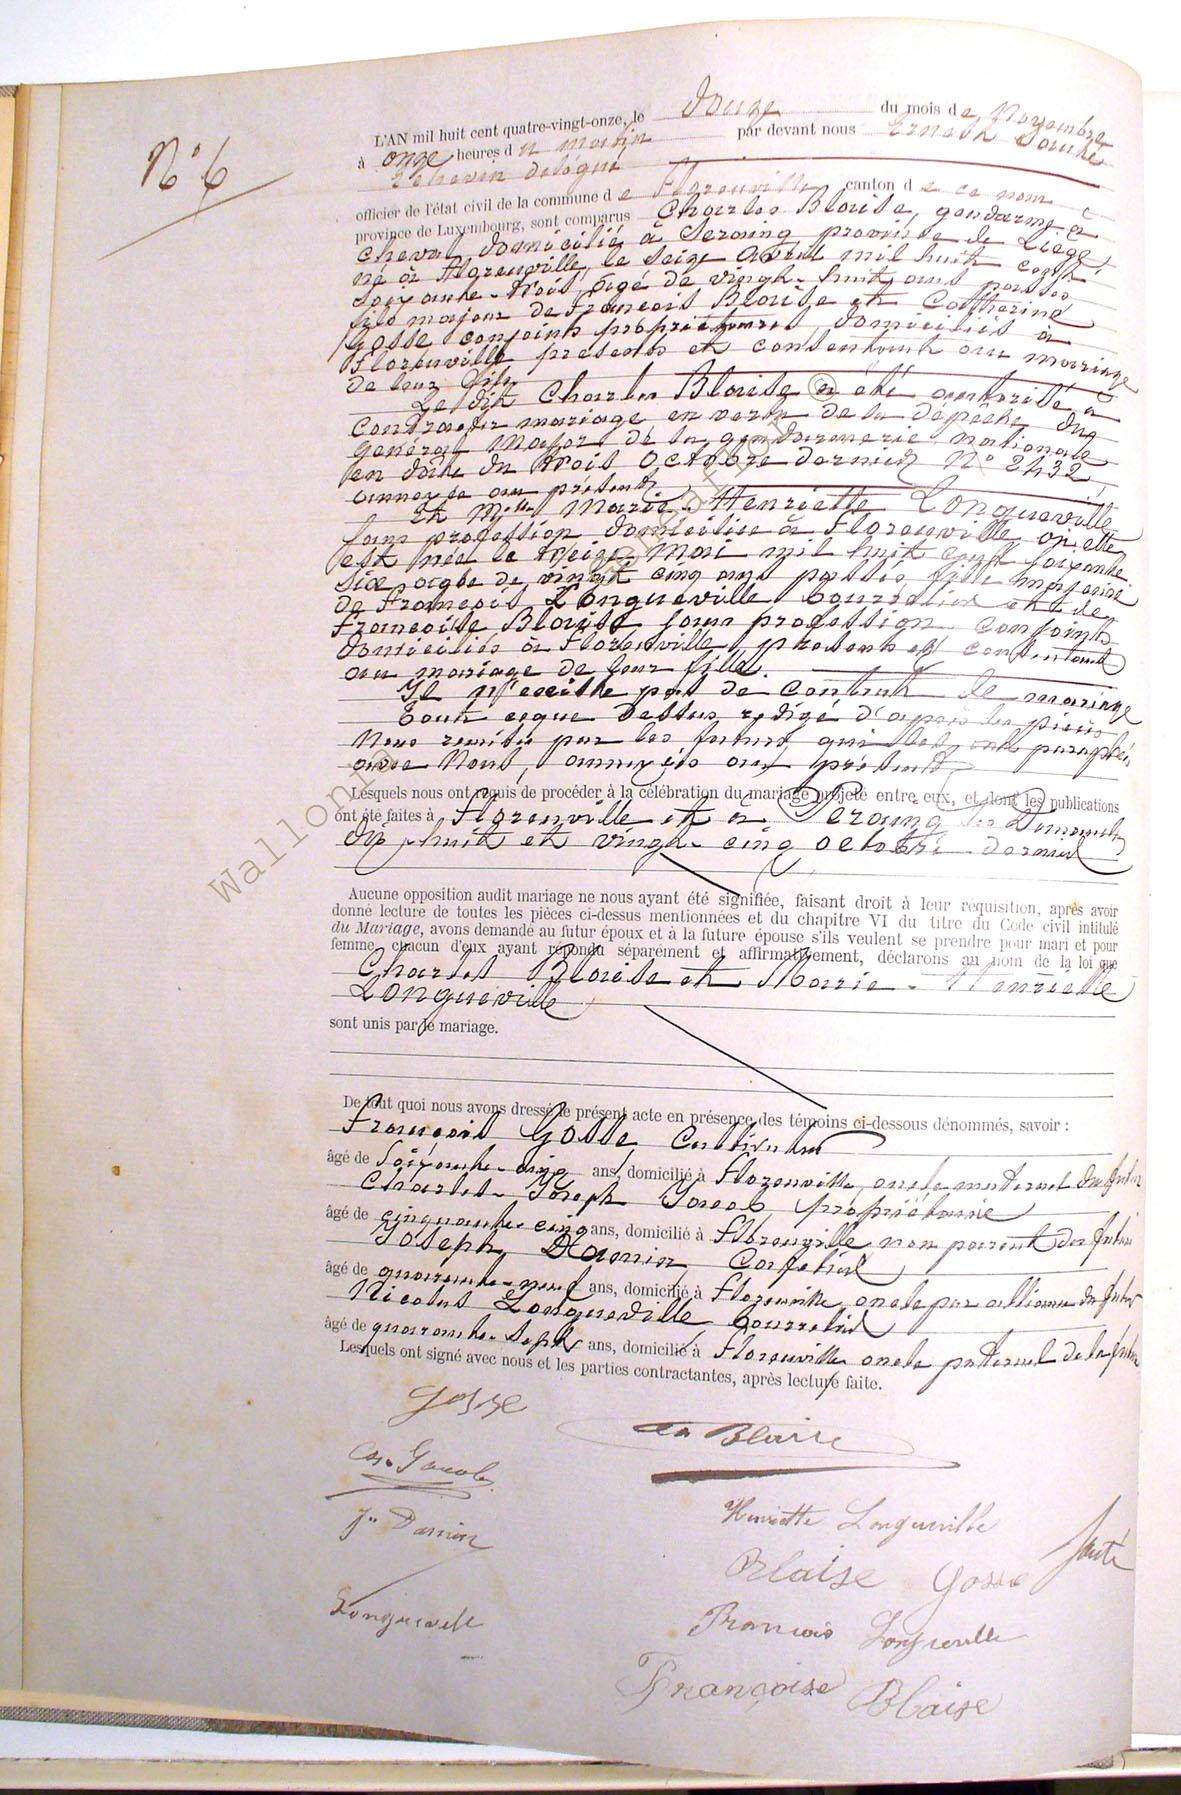 N° 6
L'AN mil huit cent quatre-vingt-onze, le douze du mois de Novembre
à onze heures du matin par devant nous Ernest Sauté
Echevin délégué
officier de l'état civil de la commune de Florenville canton de ce nom
province de Luxembourg, sont comparus Charles Blaise, gendarme à
cheval domicilié à Seraing province de Liège,
né à Florenville, le seize avril mil huit cent
soixante-trois, âgé de vingt-huit ans passés
fils majeur de François Blaise et Catherine
Gosse conjoints propriétaires domiciliés à
Florenville présents et consentant au mariage
de leur fils
Le dit Charles Blaise a été autorisé à
contracter mariage en vertu de la dépêche du
Général Major de la gendarmerie nationale
en date du trois Octobre dernier N° 2432
annexée au présent
Et Melle Marie-Henriette Longueville
sans profession domiciliée à Florenville où elle
est née le treize Mai mil huit cent soixante
six agée de vingt cinq ans passés, fille majeure
de François Longueville bourrelier et de
Françoise Blaise sans profession conjoints
domiciliés à Florenville, présents et consentant
au mariage de leur fille.
Il n'existe pas de contrat de mariage
Tout ceque dessus rédigé d'après les pièces
Nous remises par les futurs, qui les ont paraphées
avec Nous, annexées au présent
Lesquels nous ont requis de procéder à la célébration du mariage projeté entre eux, et dont les publications
ont été faites à Florenville et à Seraing les Dimanches
dix-huit et vingt-cinq octobre dernier
Aucune opposition audit mariage ne nous ayant été signifiée, faisant droit à leur réquisition, après avoir
donné lecture de toutes les pièces ci-dessus mentionnées et du chapitre VI du titre du Code civil intitulé
du Mariage, avons demandé au futur époux et à la future épouse s'ils veulent se prendre pour mari et pour
femme, chacun d'eux ayant répondu séparément et affirmativement, déclarons au nom de la loi que
Charles Blaise et Marie-Henriette
Longueville
sont unis par le mariage.
De tout quoi nous avons dressé le présent acte en présence des témoins ci-dessous dénommés, savoir :
François Gosse Cultivateur
âgé de soixante-cinq ans, domicilié à Florenville, oncle maternel du futur
Charles-Joseph Jacob, propriétaire
âgé de cinquante-cinq ans, domicilié à Florenville non parent des futurs
Joseph Damin,
âgé de quarante-neuf ans, domicilié à Florenville oncle par alliance du futur
Nicolas Longueville bourrelier
âgé de quarante-sept ans, domicilié à Florenville oncle paternel de la future
Lesquels ont signé avec nous et les parties contractantes, après lecture faite.
Gosse
Blaise
Ch. Jacob
Henriette Longueville
Jh Damin
Sauté
Blaise Gosse
Longueville
François Longueville
Françoise Blaise